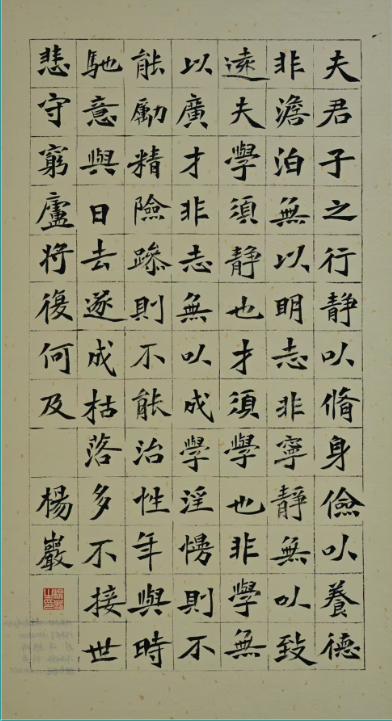 夫君子之行靜以脩身儉以養德
非澹泊無以明志非寧靜無以致
遠夫學須靜也才須學也非學無
以廣才非志無以成學淫慢則不
能勵精險躁則不能治性年與時
馳意與日去遂成枯落多不接世
悲守窮廬將復何及
楊巖